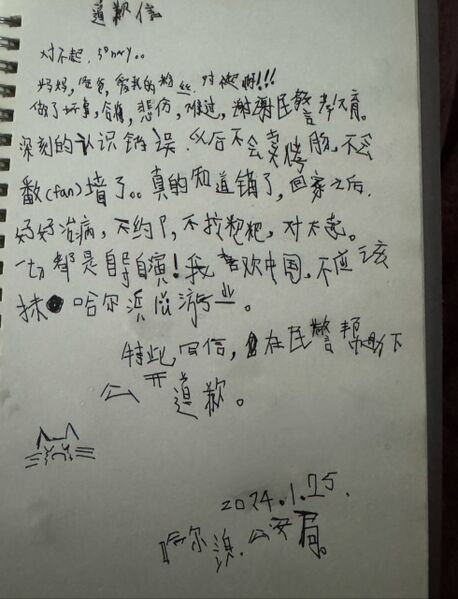 道歉信
对不起，sorry。。
妈妈，爸爸，爱我的粉丝，对不起啊!!!
做了坏事，后悔，悲伤，难过，谢谢民警教育。
深刻的认识错误，以后不会卖烤肠，不会
翻(fan)墙了。。真的知道错了，回家之后，
好好治病，不约P，不拉粑粑，对不起。
一切都是自导自演！我喜欢中国，不应该
抹 哈尔滨旅游业。
特此写信，在民警帮助下
公开道歉。
2024.1.25.
哈尔滨.公安局。